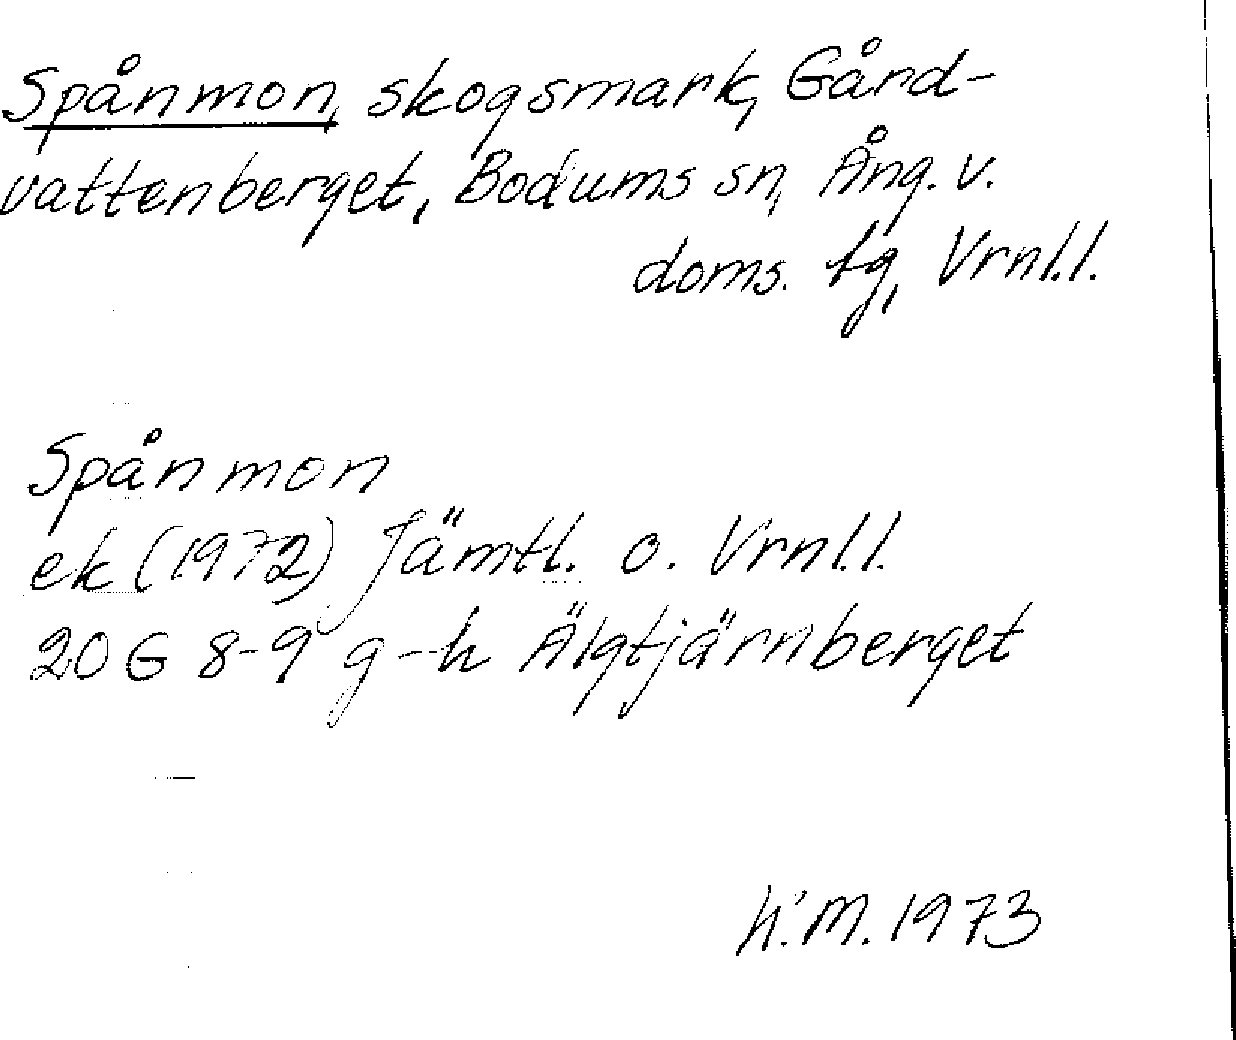 Spånmon, skogsmark, Gård-
vattenberget, Bodums sn, Ång. v.
doms. tg, Vrnl.l.
Spånmon
ek (1972) Jämtl. o. Vrnl.l.
20 G 8-9 g-h Älgtjärnberget
K.M. 1973